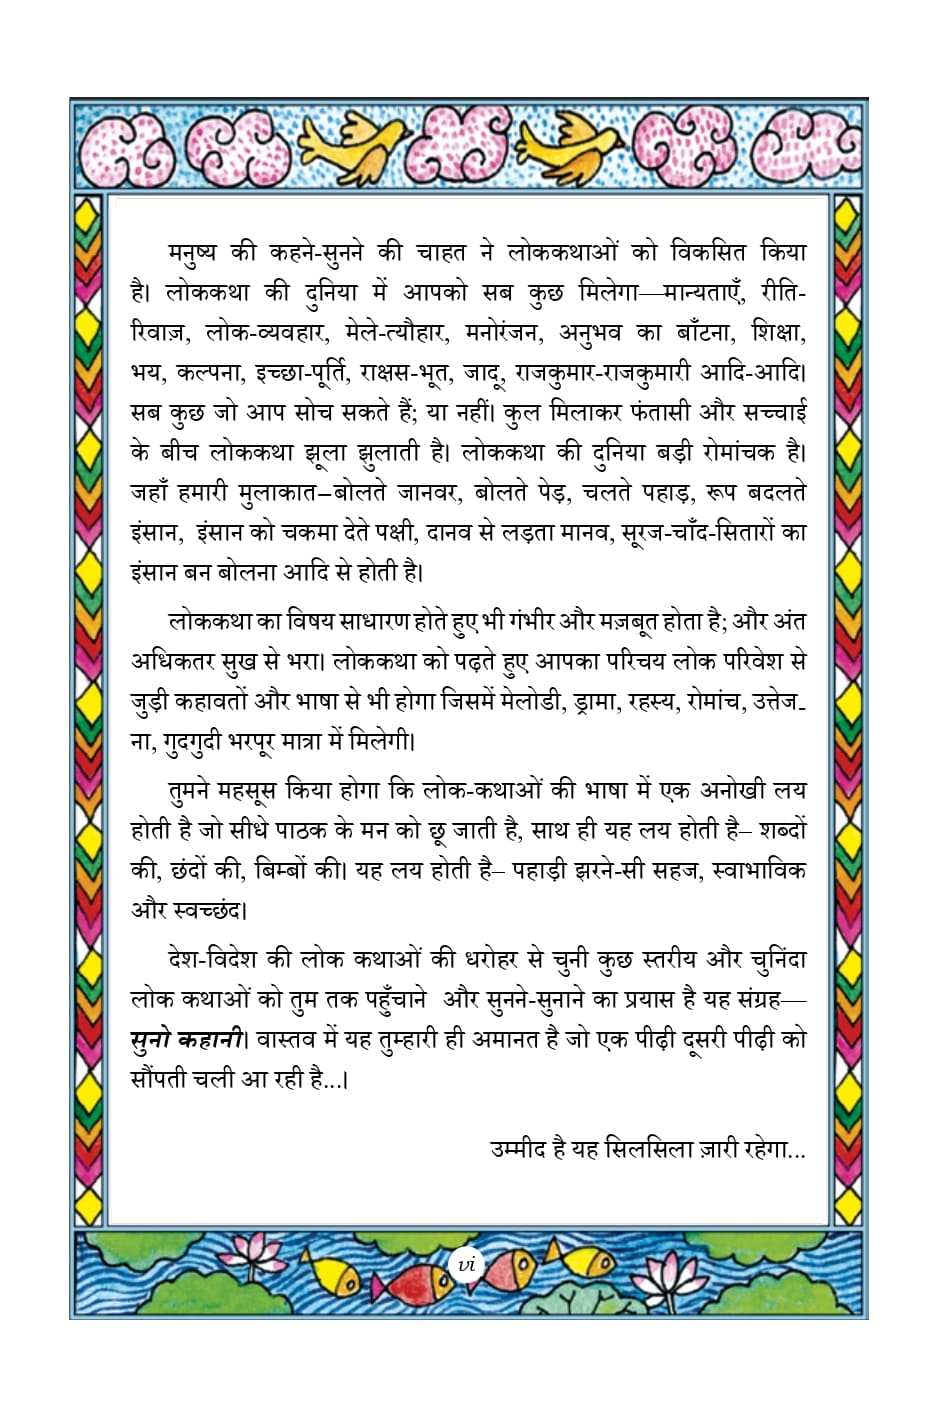 मनुष्य की कहने-सुनने की चाहत ने लोककथाओं को विकसित किया
है। लोककथा की दुनिया में आपको सब कुछ मिलेगा—मान्यताएँ, रीति-
रिवाज़, लोक-व्यवहार, मेले-त्यौहार, मनोरंजन, अनुभव का बाँटना, शिक्षा,
भय, कल्पना, इच्छा-पूर्ति, राक्षस-भूत, जादू, राजकुमार-राजकुमारी आदि-आदि।
सब कुछ जो आप सोच सकते हैं; या नहीं। कुल मिलाकर फंतासी और सच्चाई
के बीच लोककथा झूला झुलाती है। लोककथा की दुनिया बड़ी रोमांचक है।
जहाँ हमारी मुलाकात–बोलते जानवर, बोलते पेड़, चलते पहाड़, रूप बदलते
इंसान, इंसान को चकमा देते पक्षी, दानव से लड़ता मानव, सूरज-चाँद-सितारों का
इंसान बन बोलना आदि से होती है।
लोककथा का विषय साधारण होते हुए भी गंभीर और मज़बूत होता है; और अंत
अधिकतर सुख से भरा। लोककथा को पढ़ते हुए आपका परिचय लोक परिवेश से
जुड़ी कहावतों और भाषा से भी होगा जिसमें मेलोडी, ड्रामा, रहस्य, रोमांच, उत्तेज-
ना, गुदगुदी भरपूर मात्रा में मिलेगी।
तुमने महसूस किया होगा कि लोक-कथाओं की भाषा में एक अनोखी लय
होती है जो सीधे पाठक के मन को छू जाती है, साथ ही यह लय होती है– शब्दों
की, छंदों की, बिम्बों की। यह लय होती है– पहाड़ी झरने-सी सहज, स्वाभाविक
और स्वच्छंद।
देश-विदेश की लोक कथाओं की धरोहर से चुनी कुछ स्तरीय और चुनिंदा
लोक कथाओं को तुम तक पहुँचाने और सुनने-सुनाने का प्रयास है यह संग्रह—
सुनो कहानी। वास्तव में यह तुम्हारी ही अमानत है जो एक पीढ़ी दूसरी पीढ़ी को
सौंपती चली आ रही है...।
उम्मीद है यह सिलसिला ज़ारी रहेगा...
vi